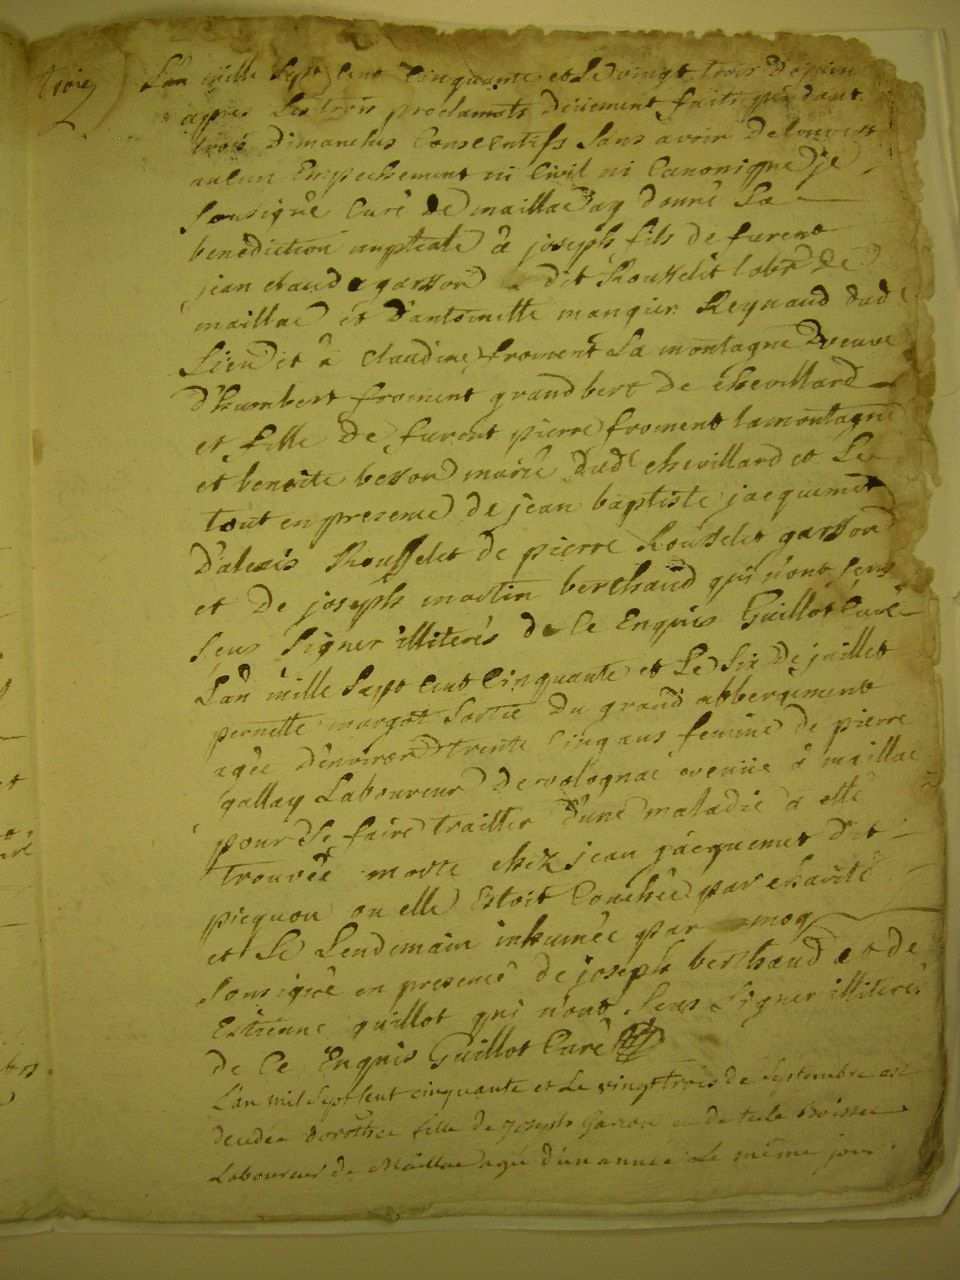 troie
L'an mille sept cent cinquante et le vingt trois de juin
apres les trois proclamats duement faits pendant
trois dimanches consecutifs sans avoir decouvert
aucun empechement ni civil ni canonique je
soussigné curé de maillac ay donné la
benediction nuptiale à joseph fils de furent
jean claude garson dit Rousselet labr de
maillac et d'antoinette mangier Reynaud dud
lieu d'et à claudine froment la montagne veuve
d'humbert froment grand bert de chevillard
et fille de furent pierre froment lamontagne
et benoite besson marié dudt chevillard et le
tout en presence de jean baptiste jacquemet
d'alexis Rousselet de pierre Rousselet garson
et de joseph martin berthaud qui n'ont sens
seus signer illiterés de ce enquis Guillot curé
L'an mille sept cent cinquante et le six de juillet
pernette margot sortie du grand abbergement
agée d'environ trente cinq ans femme de pierre
gallay Laboureur de valognac venüe à maillac
pour se faire traitter d'une maladie a eté
trouvée morte chez jean jacquemet dit
picquou ou elle estoit couchée par charité
et le Lendemain inhumée par moy
soussigné en presence de joseph berthaud et de
Estienne guillot qui n'ont seus signer illiterés
de ce Enquis Guillot Curé
L'an mil sept cent cinquante et Le vingt trois de septembre est
decedée dorothee fille de joseph Garson et de
Laboureur de Maillac agée d'un annee Le même jour